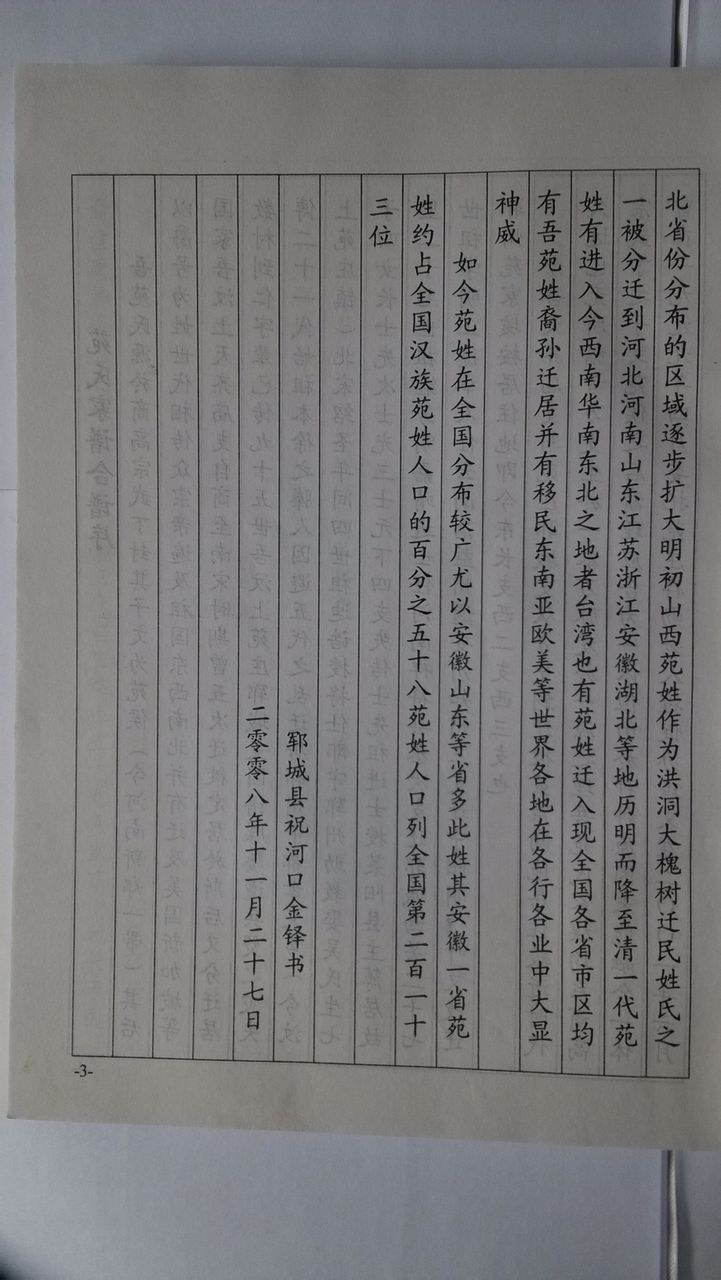 北省份分布的区域逐步扩大明初山西苑姓作为洪洞大槐树迁民姓氏之
一被分迁到河北河南山东江苏浙江安徽湖北等地历明而降至清一代苑
姓有进入今西南华南东北之地者台湾也有苑姓迁入现全国各省市区均
有吾苑姓裔孙迁居并有移民东南亚欧美等世界各地在各行各业中大显
神威
如今苑姓在全国分布较广尤以安徽山东等省多此姓其安徽一省苑
姓约占全国汉族苑姓人口的百分之五十八苑姓人口列全国第二百一十
三位
郓城县祝河口金铎书
二零零八年十一月二十七日
-3-